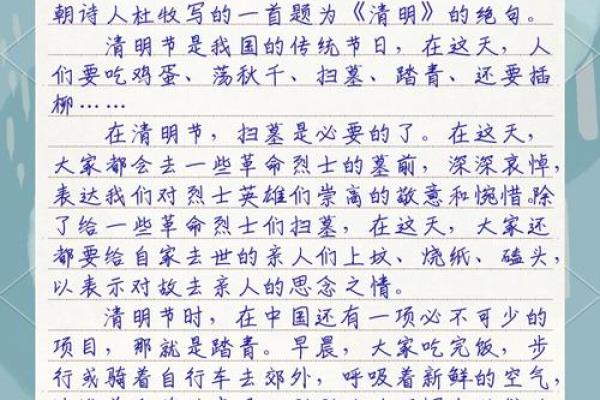 朝诗人杜牧写的一首题为《清明》的绝句。
清明节是我国的传统节日，在这天，人
们要吃鸡蛋、荡秋千、扫墓、踏青、还要插
柳……
在清明节，扫墓是必要的了。在这天，
大家都会去一些革命烈士的墓前，深深哀悼，
表达我们对烈士英雄们崇高的敬意和惋惜。除
了给一些革命烈士们扫墓，在这天，大家还
都要给自家去世的亲人们上坟、烧纸、磕头，
以表示对故去亲人的思念之情。
清明节时，在中国还有一项必不可少的
项目，那就是踏青。早晨，大家吃完饭，步
行或骑着自行车去郊外，呼吸着新鲜的空气，